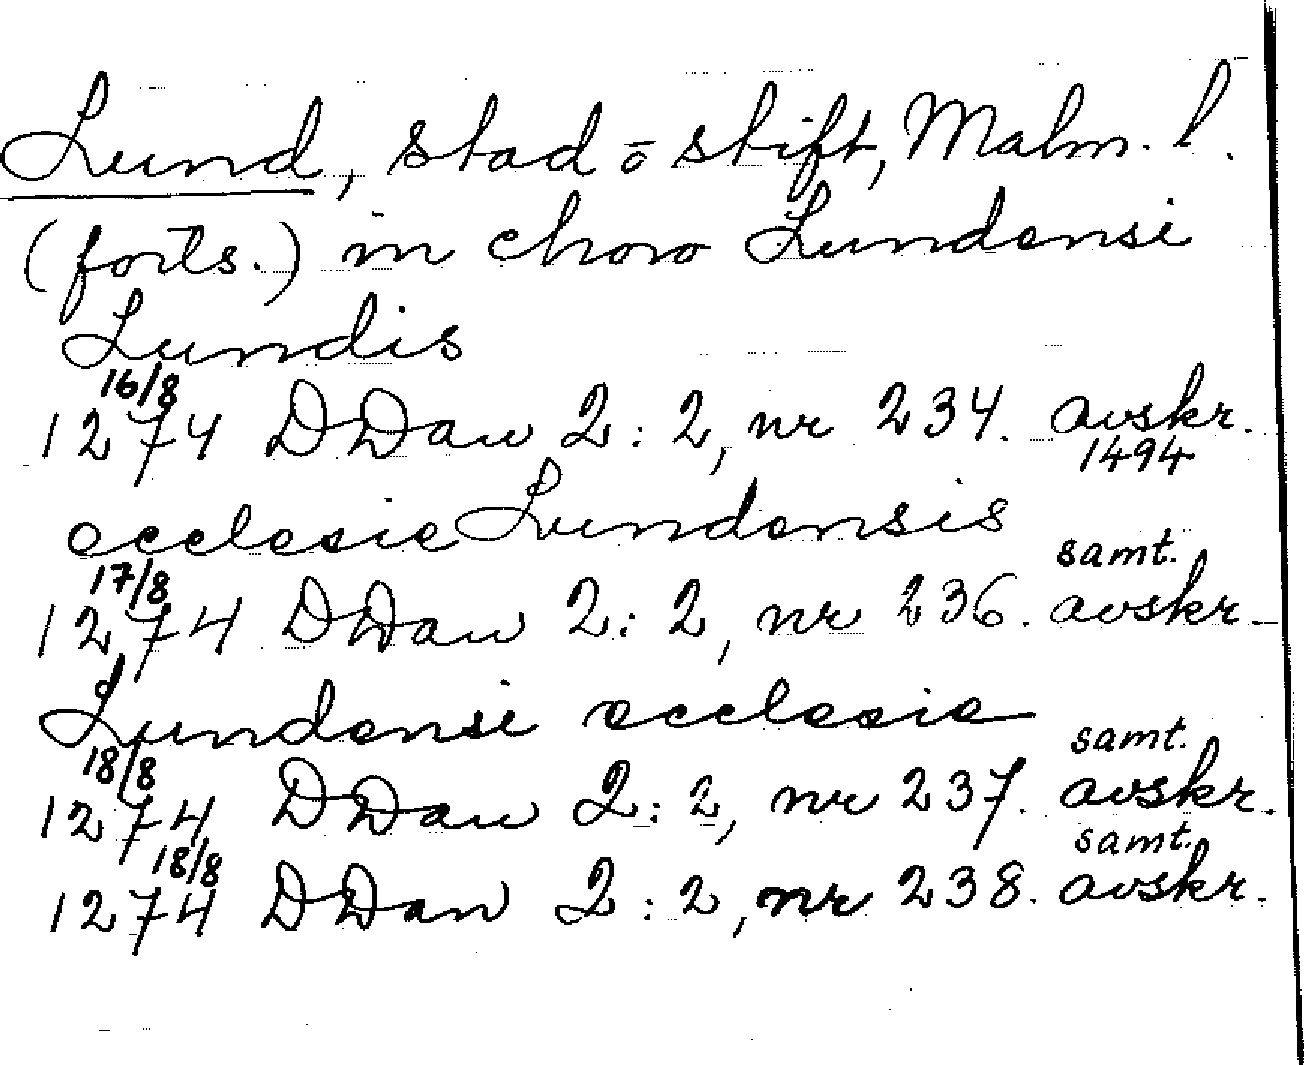 Lund, stad o stift, Malm. l.
(forts.) in choro Lundensi
Lundis
16/8
1274 DDan 2:2, nr 234. avskr.
1494
ecclesie Lundensis
17/8 samt.
1274 DDan 2:2, nr 236. avskr.
Lundensi ecclesie
18/8 samt.
1274 DDan 2:2, nr 237. avskr.
18/8 samt.
1274 DDan 2:2, nr 238. avskr.